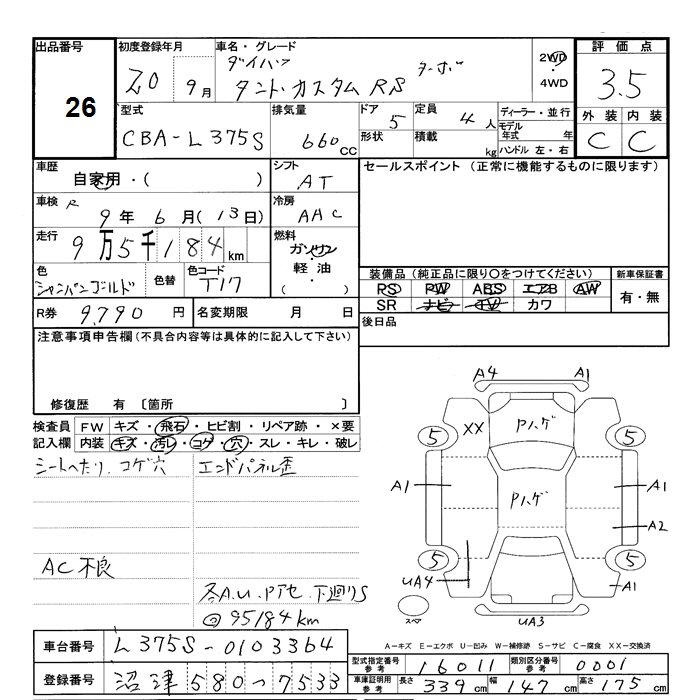 出品番号
26
初度登録年月
20 9月
車名・グレード
ダイハツ
タント カスタム RS ターボ
2WD
・
4WD
評価点
3.5
外装 内装
C C
型式
CBA-L375S
排気量
660 CC
ドア
5
形状
定員
4 人
積載
kg
ディーラー・並行
モデル年式 年
ハンドル 左・右
車歴
自家用・( )
シフト
AT
セールスポイント (正常に機能するものに限ります)
車検 R
9年 6月(13日)
冷房
AAC
走行
9万5千184km
燃料
ガソリン
・
軽油
( )
色
シャンパンゴールド
色替
色コード
T17
装備品 (純正品に限り○をつけてください)
RS PW ABS エアB AW
SR ナビ TV カワ
新車保証書
有・無
R券
9,790 円
名変期限 月 日
後日品
注意事項申告欄(不具合内容等は具体的に記入して下さい)
修復歴 有 〔箇所 〕
検査員
記入欄
FW キズ・飛石・ヒビ割・リペア跡・×要
内装 キズ・汚レ・コゲ・穴・スレ・キレ・破レ
シートへたり、コゲ穴
エンドパネル歪
AC不良
各A.U.Pアセ 下廻りS
@95184km
A4 A1
XX Pハゲ
5 5
A1 Pハゲ A1
A2
5 5
UA4 A1
スペア
UA3
A-キズ E-エクボ U-凹み W-補修跡 S-サビ C-腐食 XX-交換済
車台番号
L375S-0103364
登録番号
沼津580-7533
型式指定番号
参考
16011
類別区分番号
参考
0001
車庫証明用
参考
長さ 339cm 幅 147cm 高さ 175cm